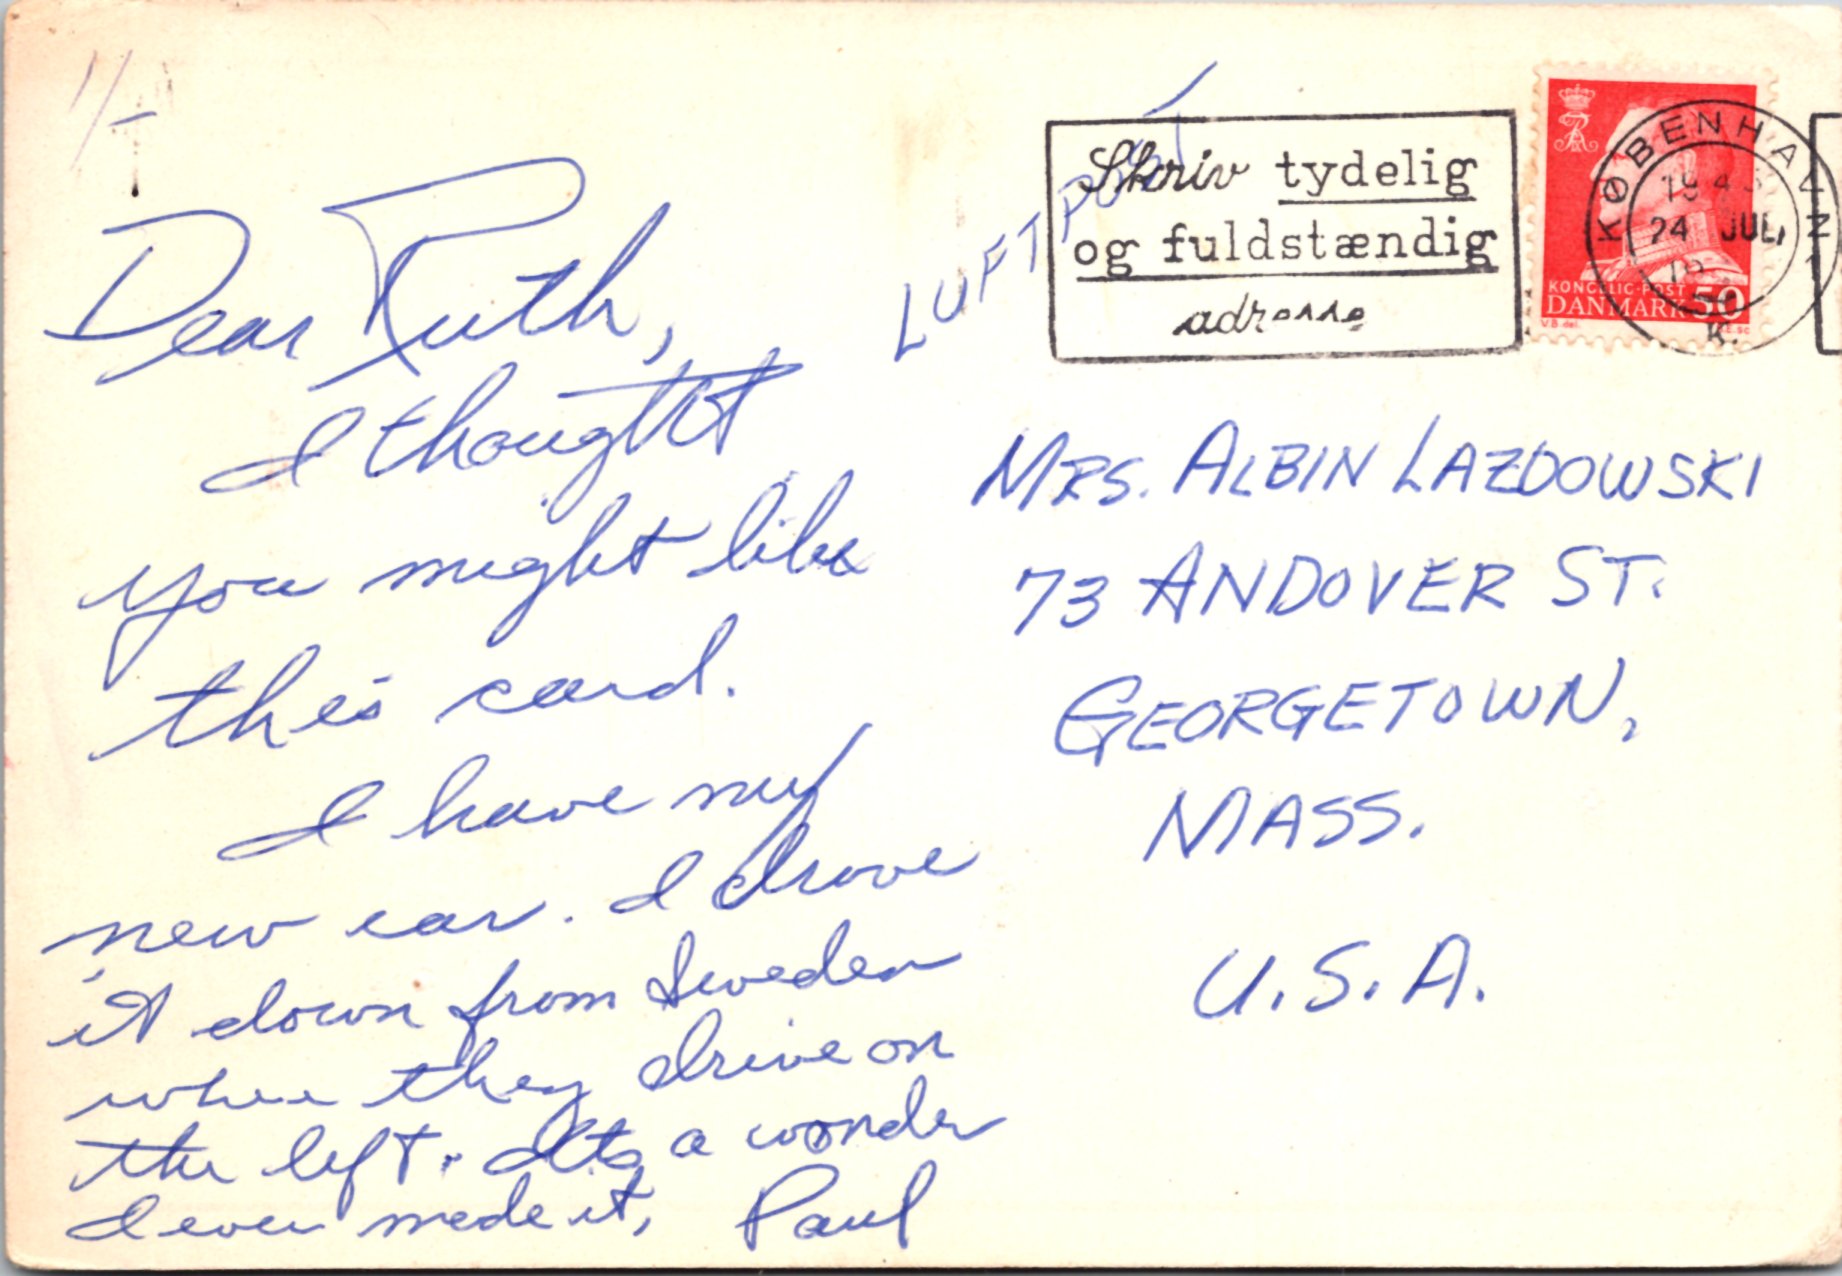 Dear Ruth,
I thought
you might like
this card.
I have my
new car. I drove
it down from Sweden
where they drive on
the left. Its a wonder
I ever made it, Paul
LUFTPOST
Skriv tydelig
og fuldstændig
adresse
KØBENHAVN
24 JUL.
K.
KONGELIG POST
DANMARK 50
MRS. ALBIN LAZDOWSKI
73 ANDOVER ST.
GEORGETOWN,
MASS.
U.S.A.